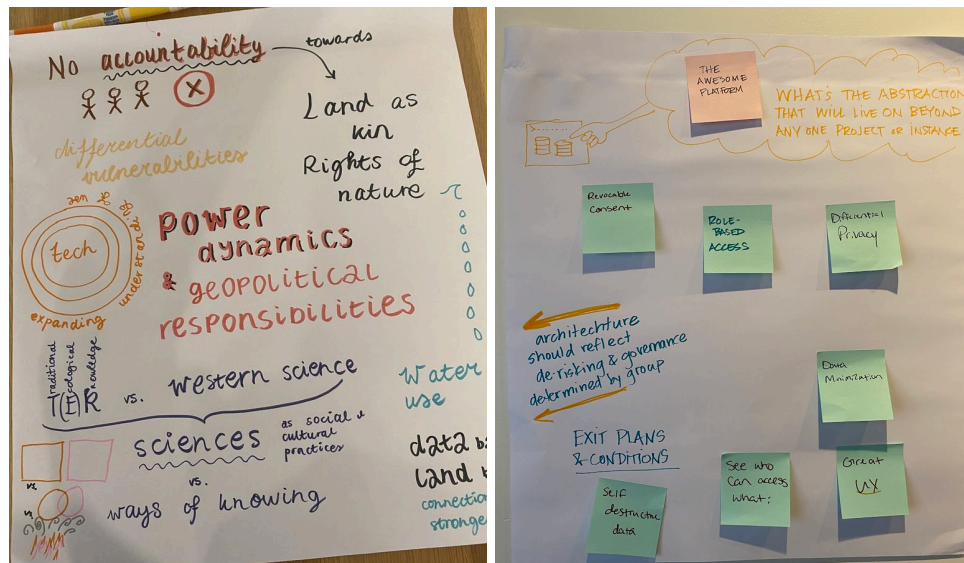 No accountability
towards
Land as
kin
Rights of
nature
differential
vulnerabilities
tech
expanding
power
dynamics
& geopolitical
responsibilities
Traditional
Ecological
Knowledge
vs. western science
sciences
as social &
cultural
practices
vs.
ways of knowing
vs
Water
use
data
Land
THE
AWESOME
PLATFORM
WHAT'S THE ABSTRACTION
THAT WILL LIVE ON BEYOND
ANY ONE PROJECT OR INSTANCE
Revocable
Consent
ROLE-
BASED
ACCESS
Differential
Privacy
architechture
should reflect
de-risking & governance
determined by group
Data
Minimization
EXIT PLANS
& CONDITIONS
Self
destructing
data
See who
can access
what:
Great
UX